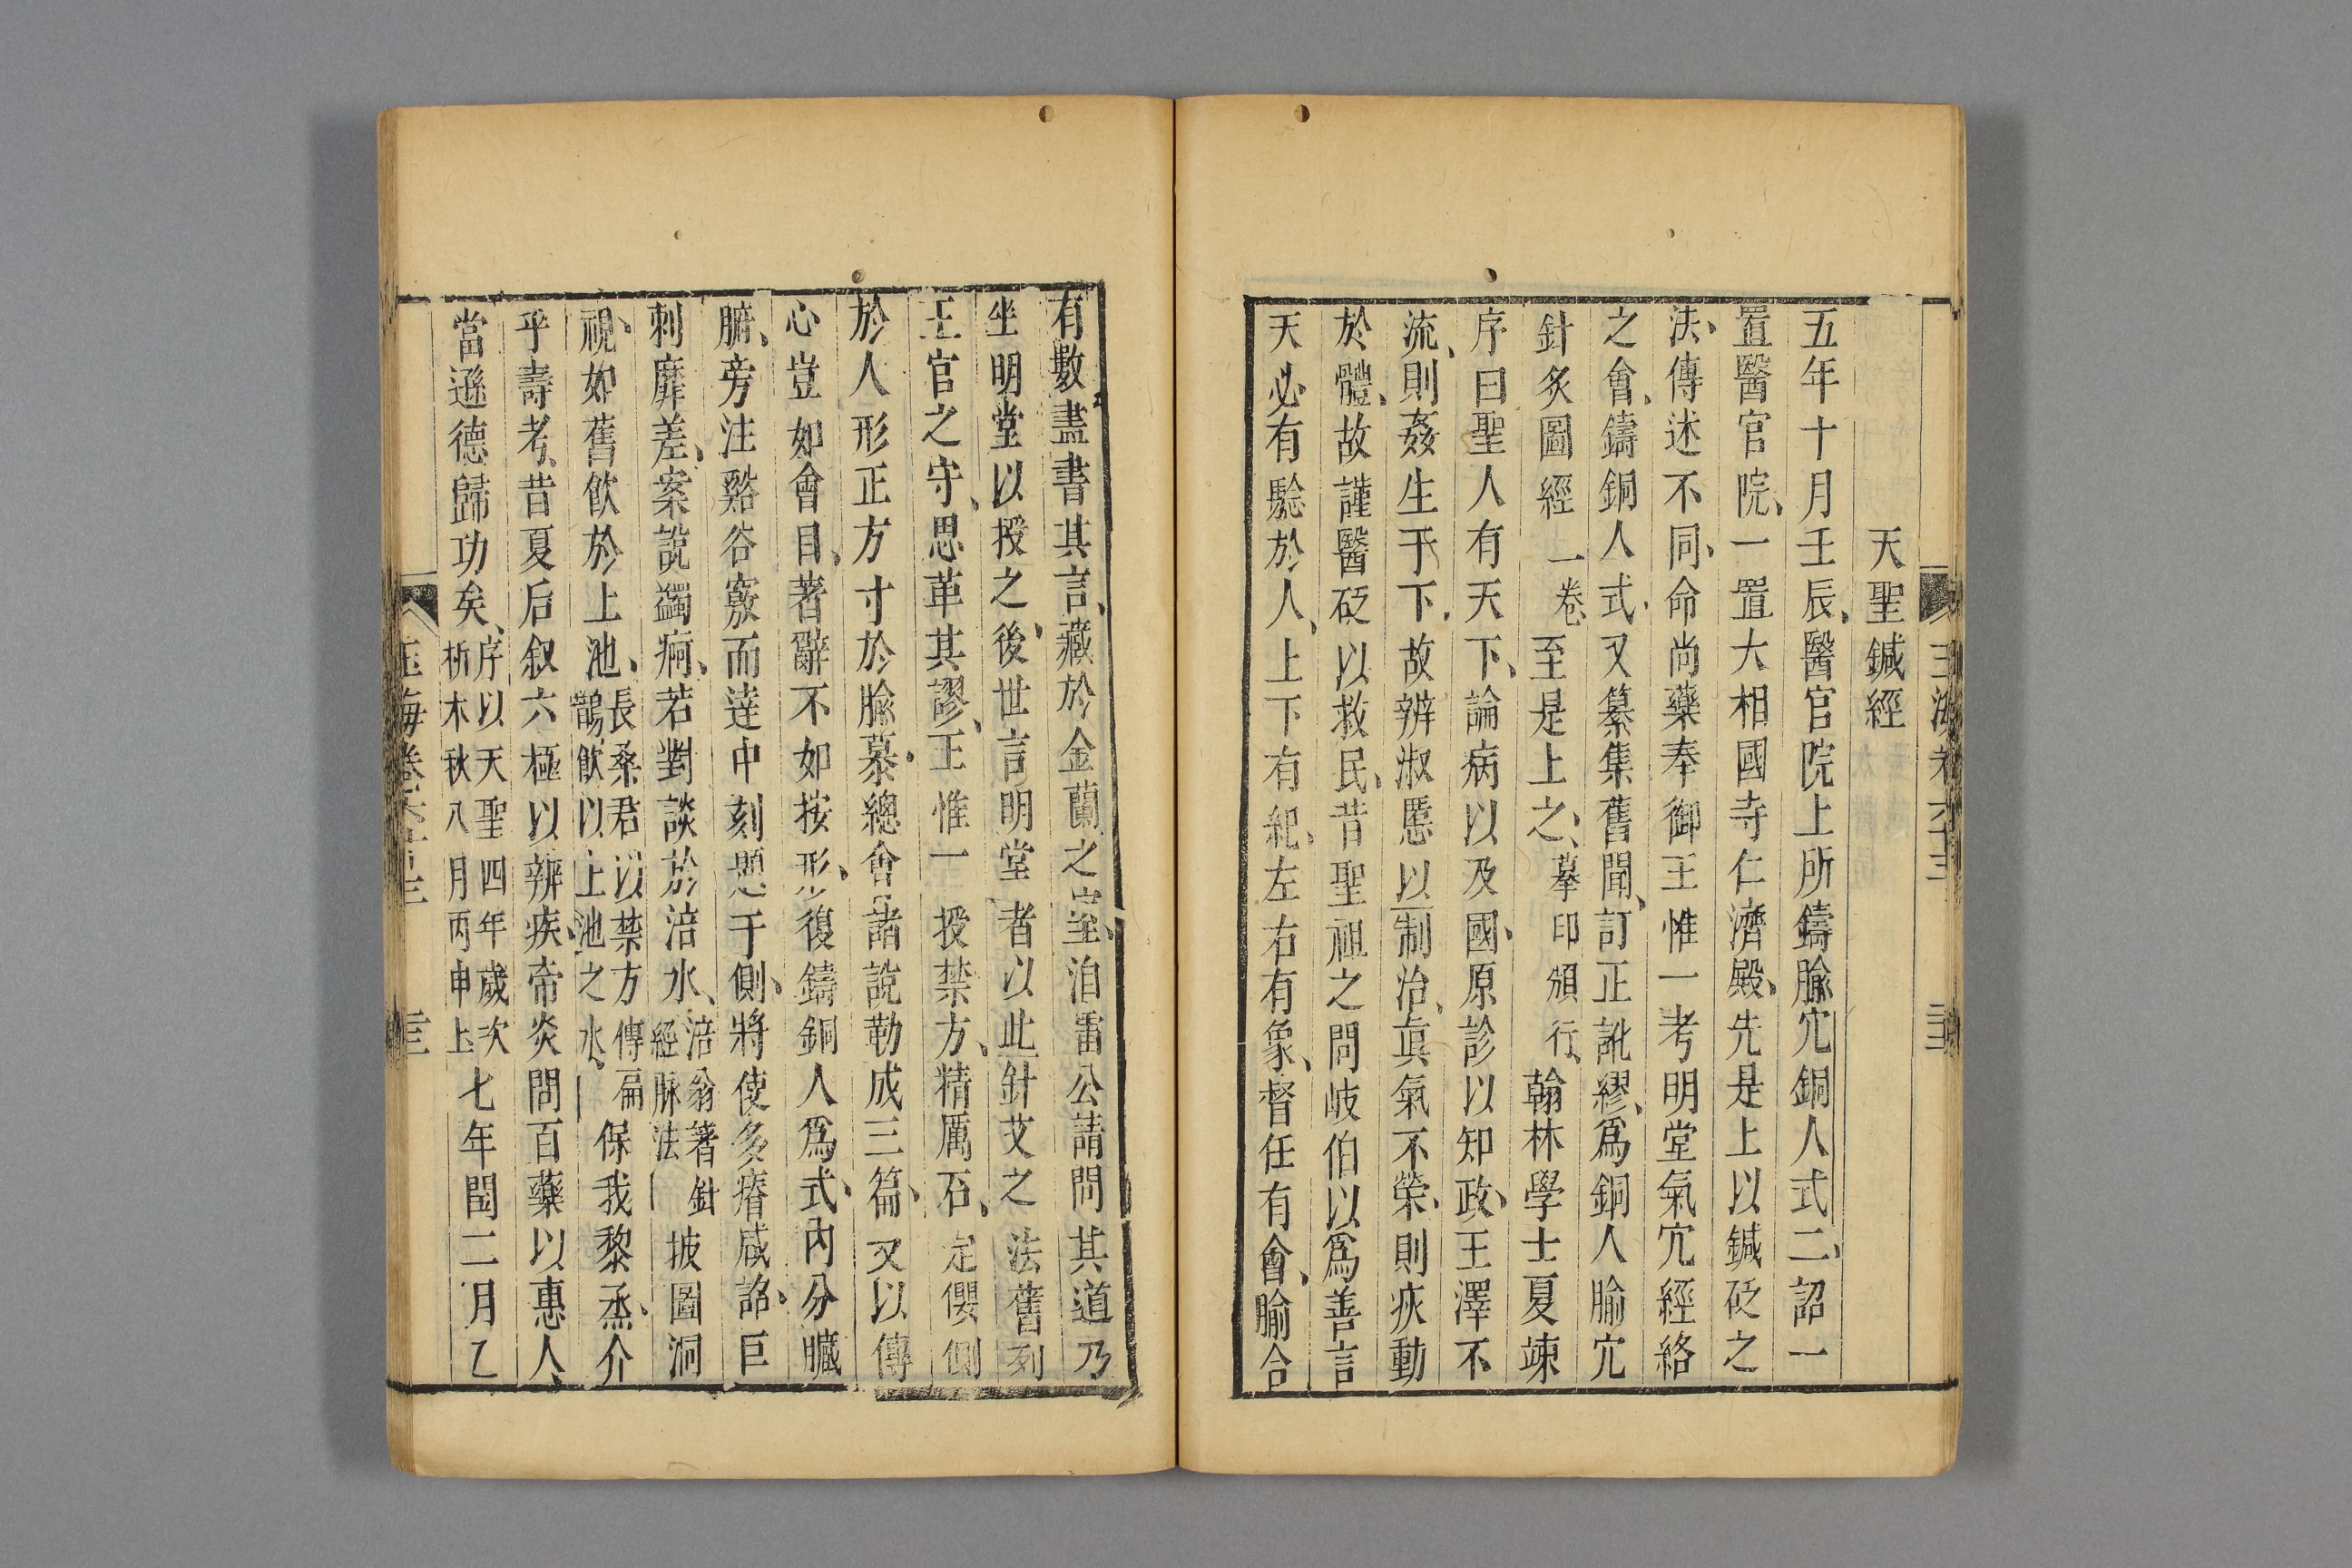 天聖鍼經
五年十月壬辰、醫官院上所鑄腧穴銅人式二、詔一
置醫官院、一置大相國寺仁濟殿、先是上以鍼砭之
法、傳述不同、命尚藥奉御王惟一考明堂氣穴經絡
之會、鑄銅人式、又纂集舊聞、訂正訛繆、爲銅人腧穴
針炙圖經一卷、至是上之、摹印頒行、翰林學士夏竦
序曰聖人有天下、論病以及國、原診以知政、王澤不
流、則姦生于下、故辨淑慝以制治、眞氣不榮、則疢動
於體、故謹醫砭以救民、昔聖祖之問岐伯以爲善言
天必有驗於人、上下有紀、左右有象、督任有會、腧合
有數、盡書其言、藏於金蘭之室、洎雷公請問其道乃
坐明堂以授之、後世言明堂者以此針艾之法舊列
王官之守、思革其謬、王惟一授禁方、精厲石、定偃側
於人形正方寸於腧募、總會諸說勒成三篇、又以傳
心豈如會目、著辭不如按形、復鑄銅人爲式、內分臟
腑、旁注谿谷竅而達中刻題于側、將使多瘠咸詔、巨
刺靡差、案說蠲痾、若對談於涪水、涪翁著針
經脉法披圖洞
視、如舊飲於上池、長桑君以禁方傳扁
鵲、飲以上池之水、保我黎烝、介
乎壽考、昔夏后叙六極以辨疾、帝炎問百藥以惠人、
當遜德歸功矣、序以天聖四年歲次
析木秋八月丙申上七年閏二月乙
玉海卷六十三